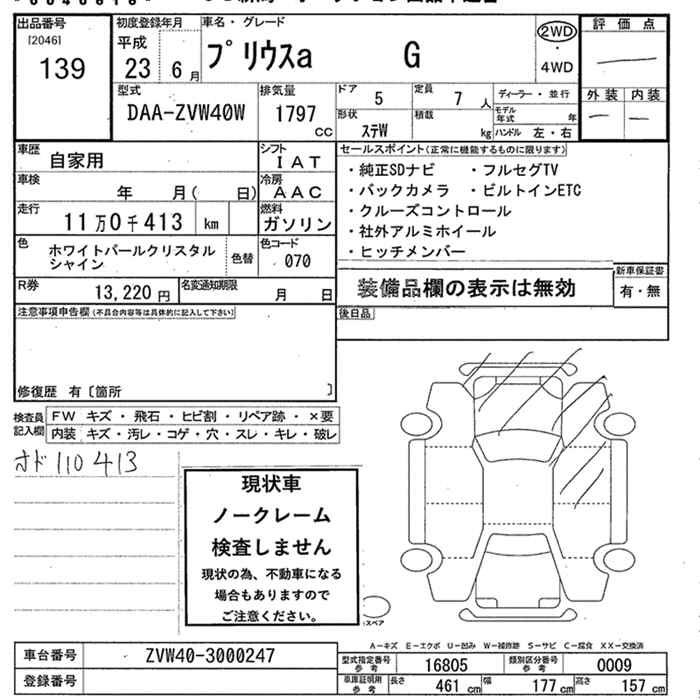 出品番号
[2046]
139
初度登録年月
平成
23 6月
車名・グレード
プリウスα G
2WD
・
4WD
評価点
外装 内装
型式
DAA-ZVW40W
排気量
1797
cc
ドア 5
定員 7 人
ディーラー・並行
形状 ステW
積載 kg
モデル年式 年
ハンドル 左・右
車歴 自家用
シフト IAT
車検 年 月( 日)
冷房 AAC
走行 11万0千413 km
燃料 ガソリン
色 ホワイトパールクリスタルシャイン
色替
色コード 070
R券 13,220円
名変通知期限 月 日
セールスポイント(正常に機能するものに限ります)
・純正SDナビ ・フルセグTV
・バックカメラ ・ビルトインETC
・クルーズコントロール
・社外アルミホイール
・ヒッチメンバー
装備品欄の表示は無効
新車保証書
有・無
注意事項申告欄(不具合内容等は具体的に記入して下さい)
後日品
修復歴 有〔箇所 〕
検査員記入欄
FW キズ・飛石・ヒビ割・リペア跡・×要
内装 キズ・汚レ・コゲ・穴・スレ・キレ・破レ
オド 110413
現状車
ノークレーム
検査しません
現状の為、不動車になる
場合もありますので
ご注意ください。
スペア
A−キズ E−エクボ U−凹み W−補修跡 S−サビ C−腐食 XX−交換済
車台番号 ZVW40-3000247
登録番号
型式指定番号参考 16805
類別区分番号参考 0009
車庫証明用参考 長さ 461 cm 幅 177 cm 高さ 157 cm